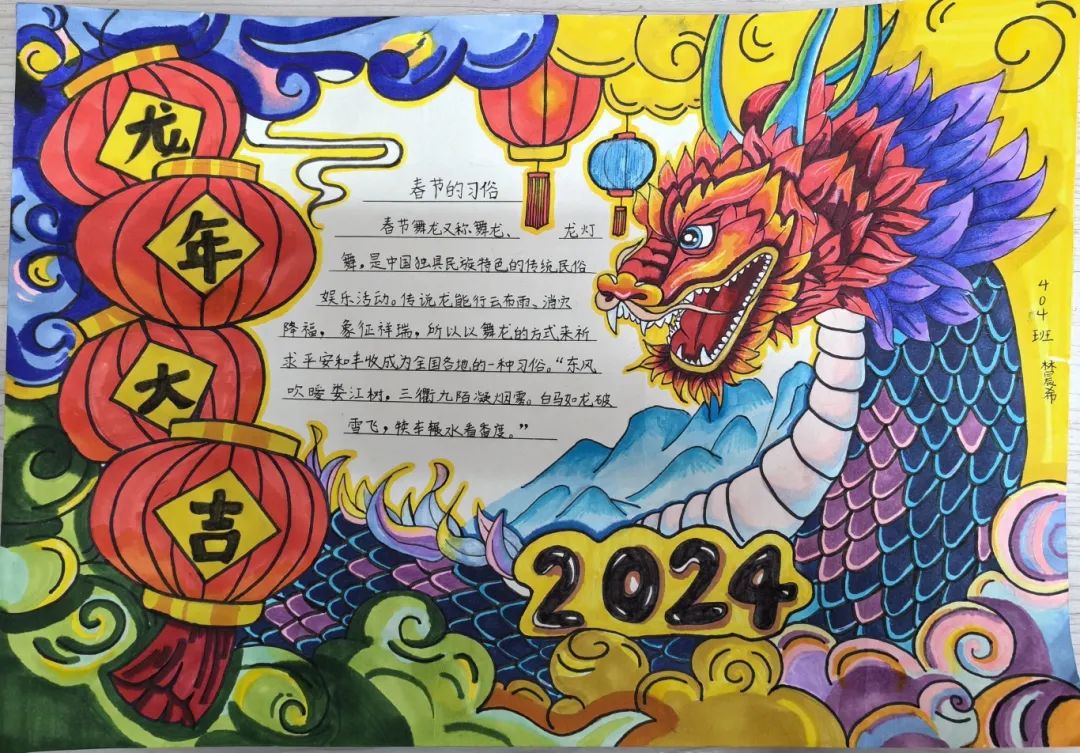 龙
年
大
吉
春节的习俗
春节舞龙又称舞龙、 龙灯
舞，是中国独具民族特色的传统民俗
娱乐活动。传说龙能行云布雨、消灾
降福，象征祥瑞，所以以舞龙的方式来祈
求平安和丰收成为全国各地的一种习俗。“东风
吹暖娄江树，三衢九陌凝烟雾。白马如龙破
雪飞，犊车辗水看香度。”
2024
404班
林晨希